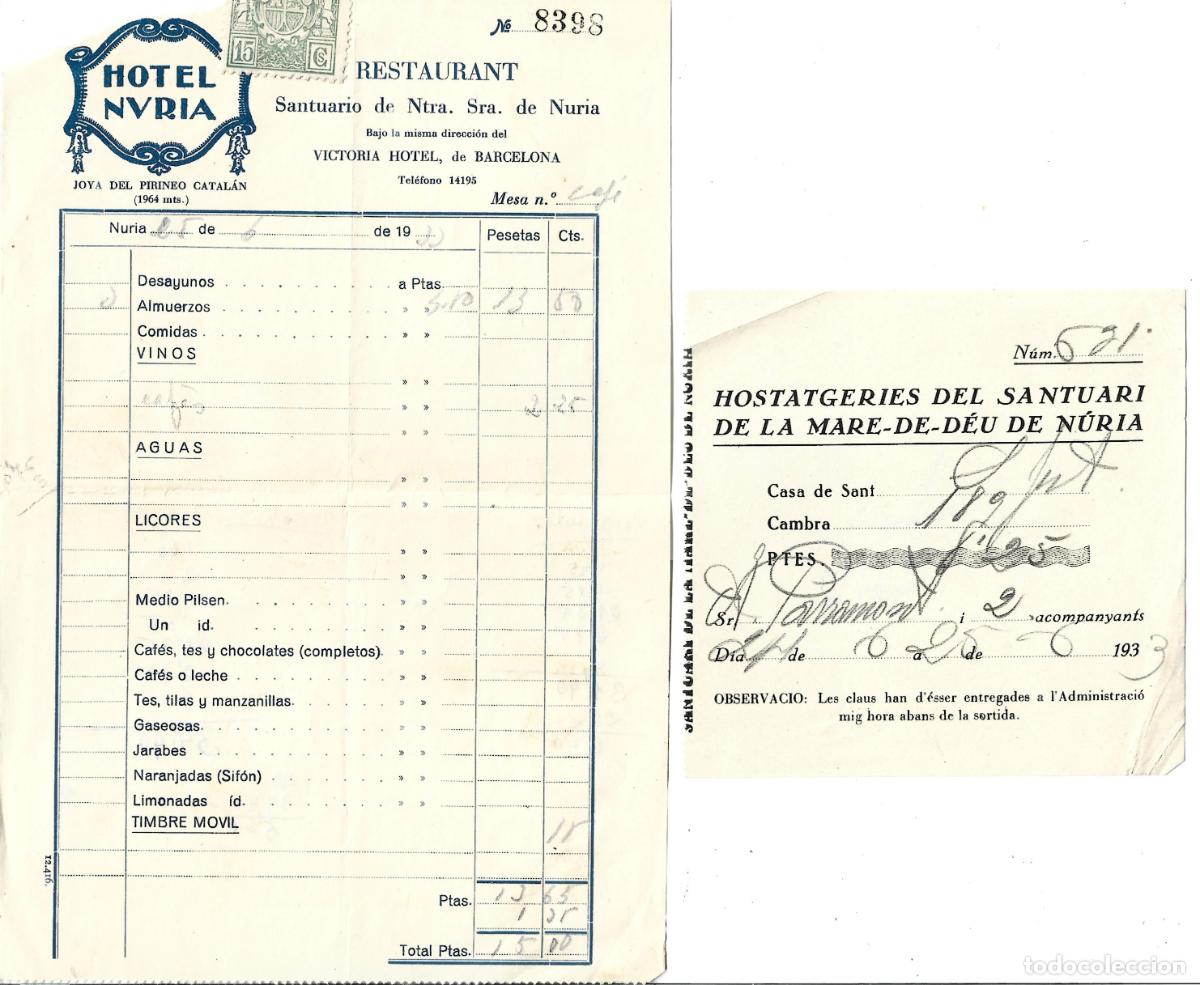 Nº 8398
15 Cs
HOTEL
NVRIA
JOYA DEL PIRINEO CATALÁN
(1964 mts.)
RESTAURANT
Santuario de Ntra. Sra. de Nuria
Bajo la misma dirección del
VICTORIA HOTEL, de BARCELONA
Teléfono 14195
Mesa n.º café
Nuria 25 de 6 de 19 33 Pesetas Cts.
Desayunos a Ptas.
Almuerzos » » 13 50
Comidas » »
VINOS
» »
» » 2 25
» »
AGUAS
» »
» »
LICORES
» »
» »
Medio Pilsen » »
Un id. » »
Cafés, tes y chocolates (completos) » »
Cafés o leche » »
Tes, tilas y manzanillas » »
Gaseosas » »
Jarabes » »
Naranjadas (Sifón) » »
Limonadas íd. » »
TIMBRE MOVIL 15
12.416.
Ptas. 13 65
1 35
Total Ptas. 15 00
Núm. 621
HOSTATGERIES DEL SANTUARI
DE LA MARE-DE-DÉU DE NÚRIA
Casa de Sant
Cambra
PTES. 25
Sr. Parramon i 2 acompanyants
Dia 24 de 6 a 25 de 6 1933
OBSERVACIO: Les claus han d'ésser entregades a l'Administració
mig hora abans de la sortida.
todocoleccion